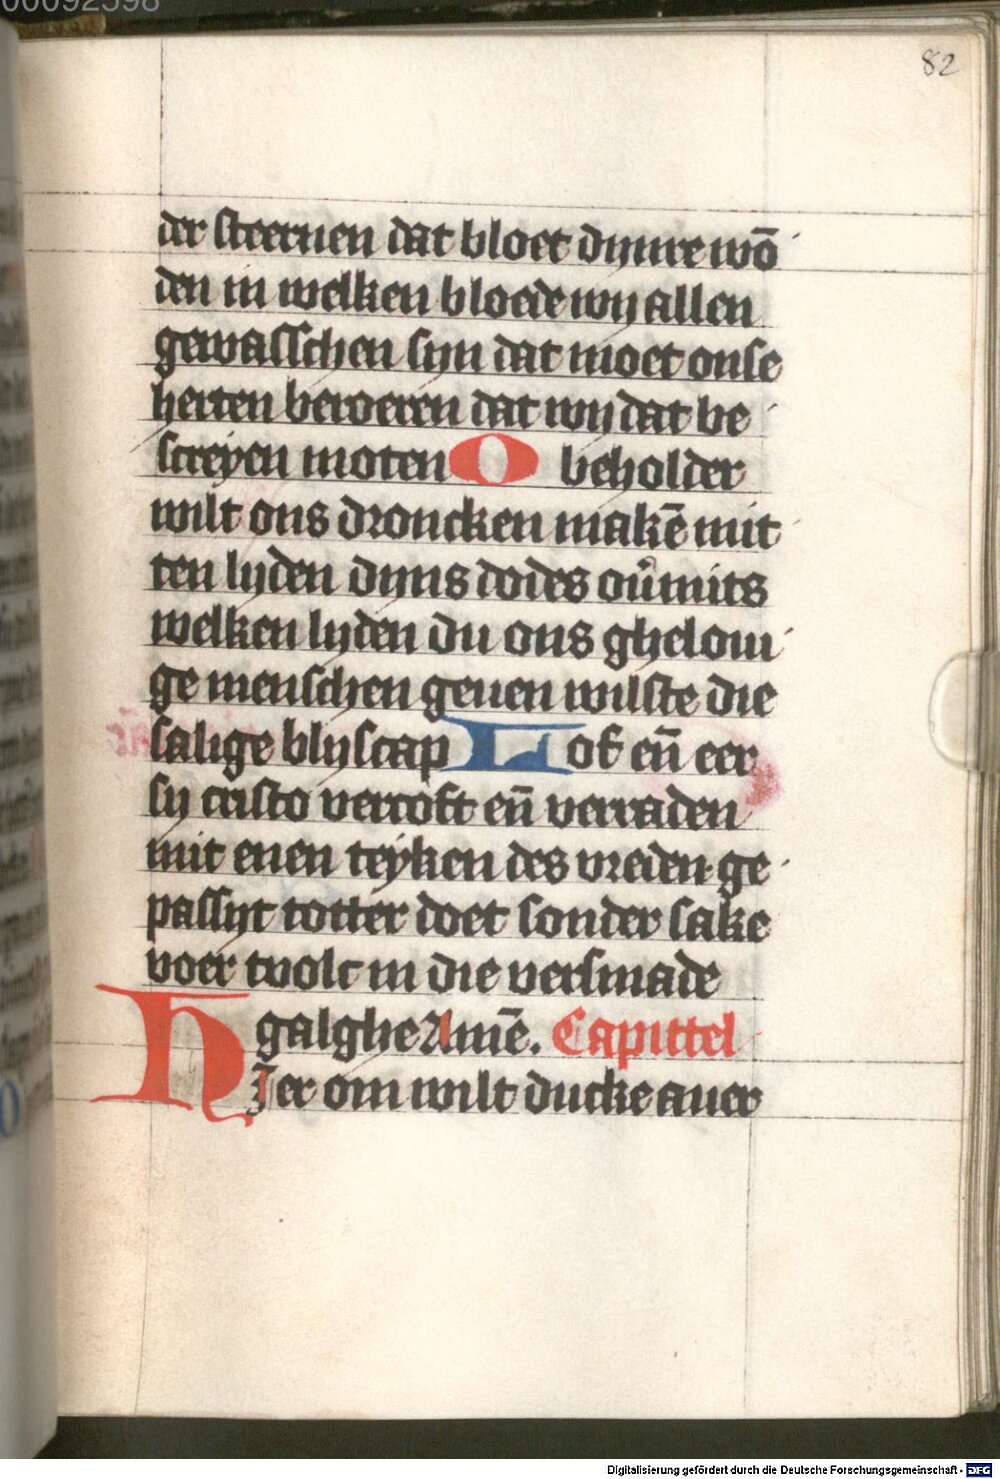 00092598
82
der steernen dat bloet dijnre wō
den in welken bloede wij allen
gewasschen sijn dat moet onse
herten beroeren dat wij dat be
screyen moten O beholder
wilt ons droncken makē mit
ten lijden dijns dodes ou̅mits
welken lijden du ons ghelovi
ge menschen geuen wilste die
salige blijscap Lof en̄ eer
sij cristo vercoft en̄ verraden
mit enen teyken des vreden ge
passijt totter doet sonder sake
voer tvolc in die versmade
galghe Amē. Capittel
Hier om wilt ducke auer
Digitalisierung gefördert durch die Deutsche Forschungsgemeinschaft - DFG